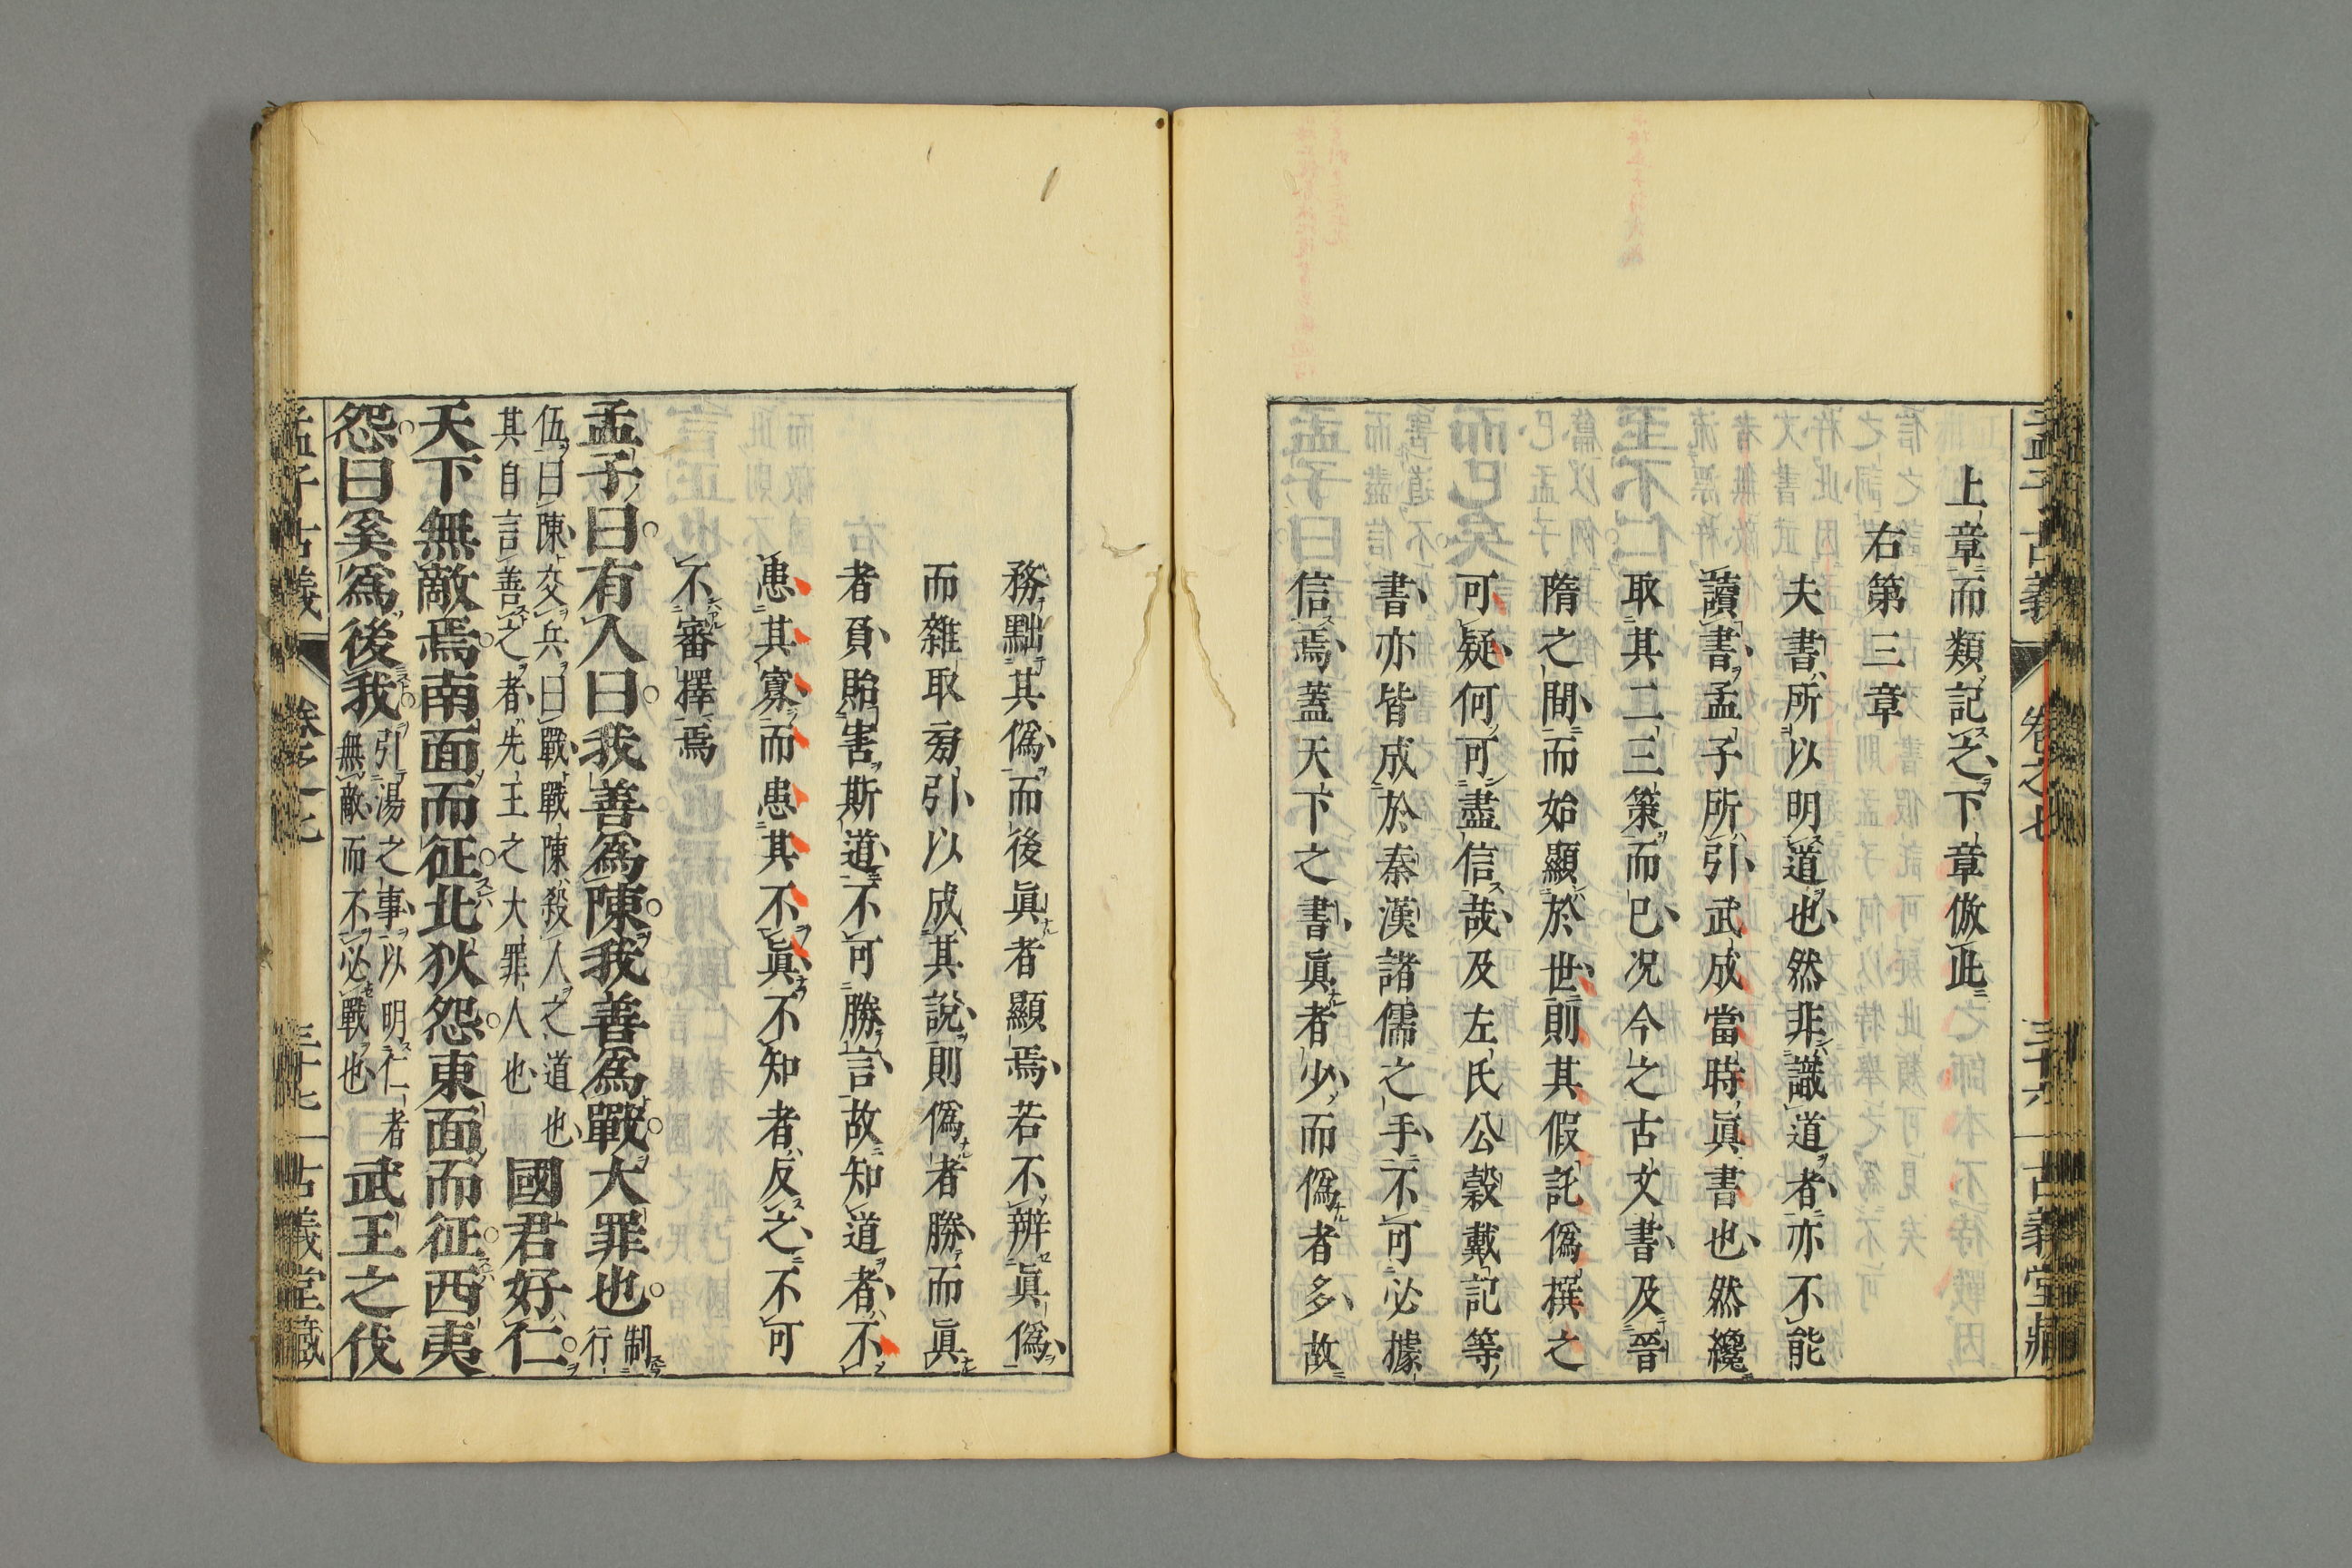 孟子古義 卷之七 三十六 古義堂藏
上章而類記之下章倣此
右第三章
夫書所以明道也然非識道者亦不能
讀書孟子所引武成當時眞書也然纔
取其二三策而已况今之古文書及晉
隋之間而始顯於世則其假託僞撰之
可疑何可盡信哉及左氏公穀戴記等
書亦皆成於秦漢諸儒之手不可必據
信焉蓋天下之書眞者少而僞者多故
務黜其僞而後眞者顯焉若不辨眞僞
而雜取旁引以成其說則僞者勝而眞
者負貽害斯道不可勝言故知道者不
患其寡而患其不眞不知者反之不可
不審擇焉
孟子曰有人曰我善爲陳我善爲戰大罪也制行
伍曰陳交兵曰戰戰陳殺人之道也
其自言善之者先王之大罪人也國君好仁
天下無敵焉南面而征北狄怨東面而征西夷
怨曰奚爲後我引湯之事以明仁者
無敵而不必戰也武王之伐
孟子古義 卷之七 三十七 古義堂藏